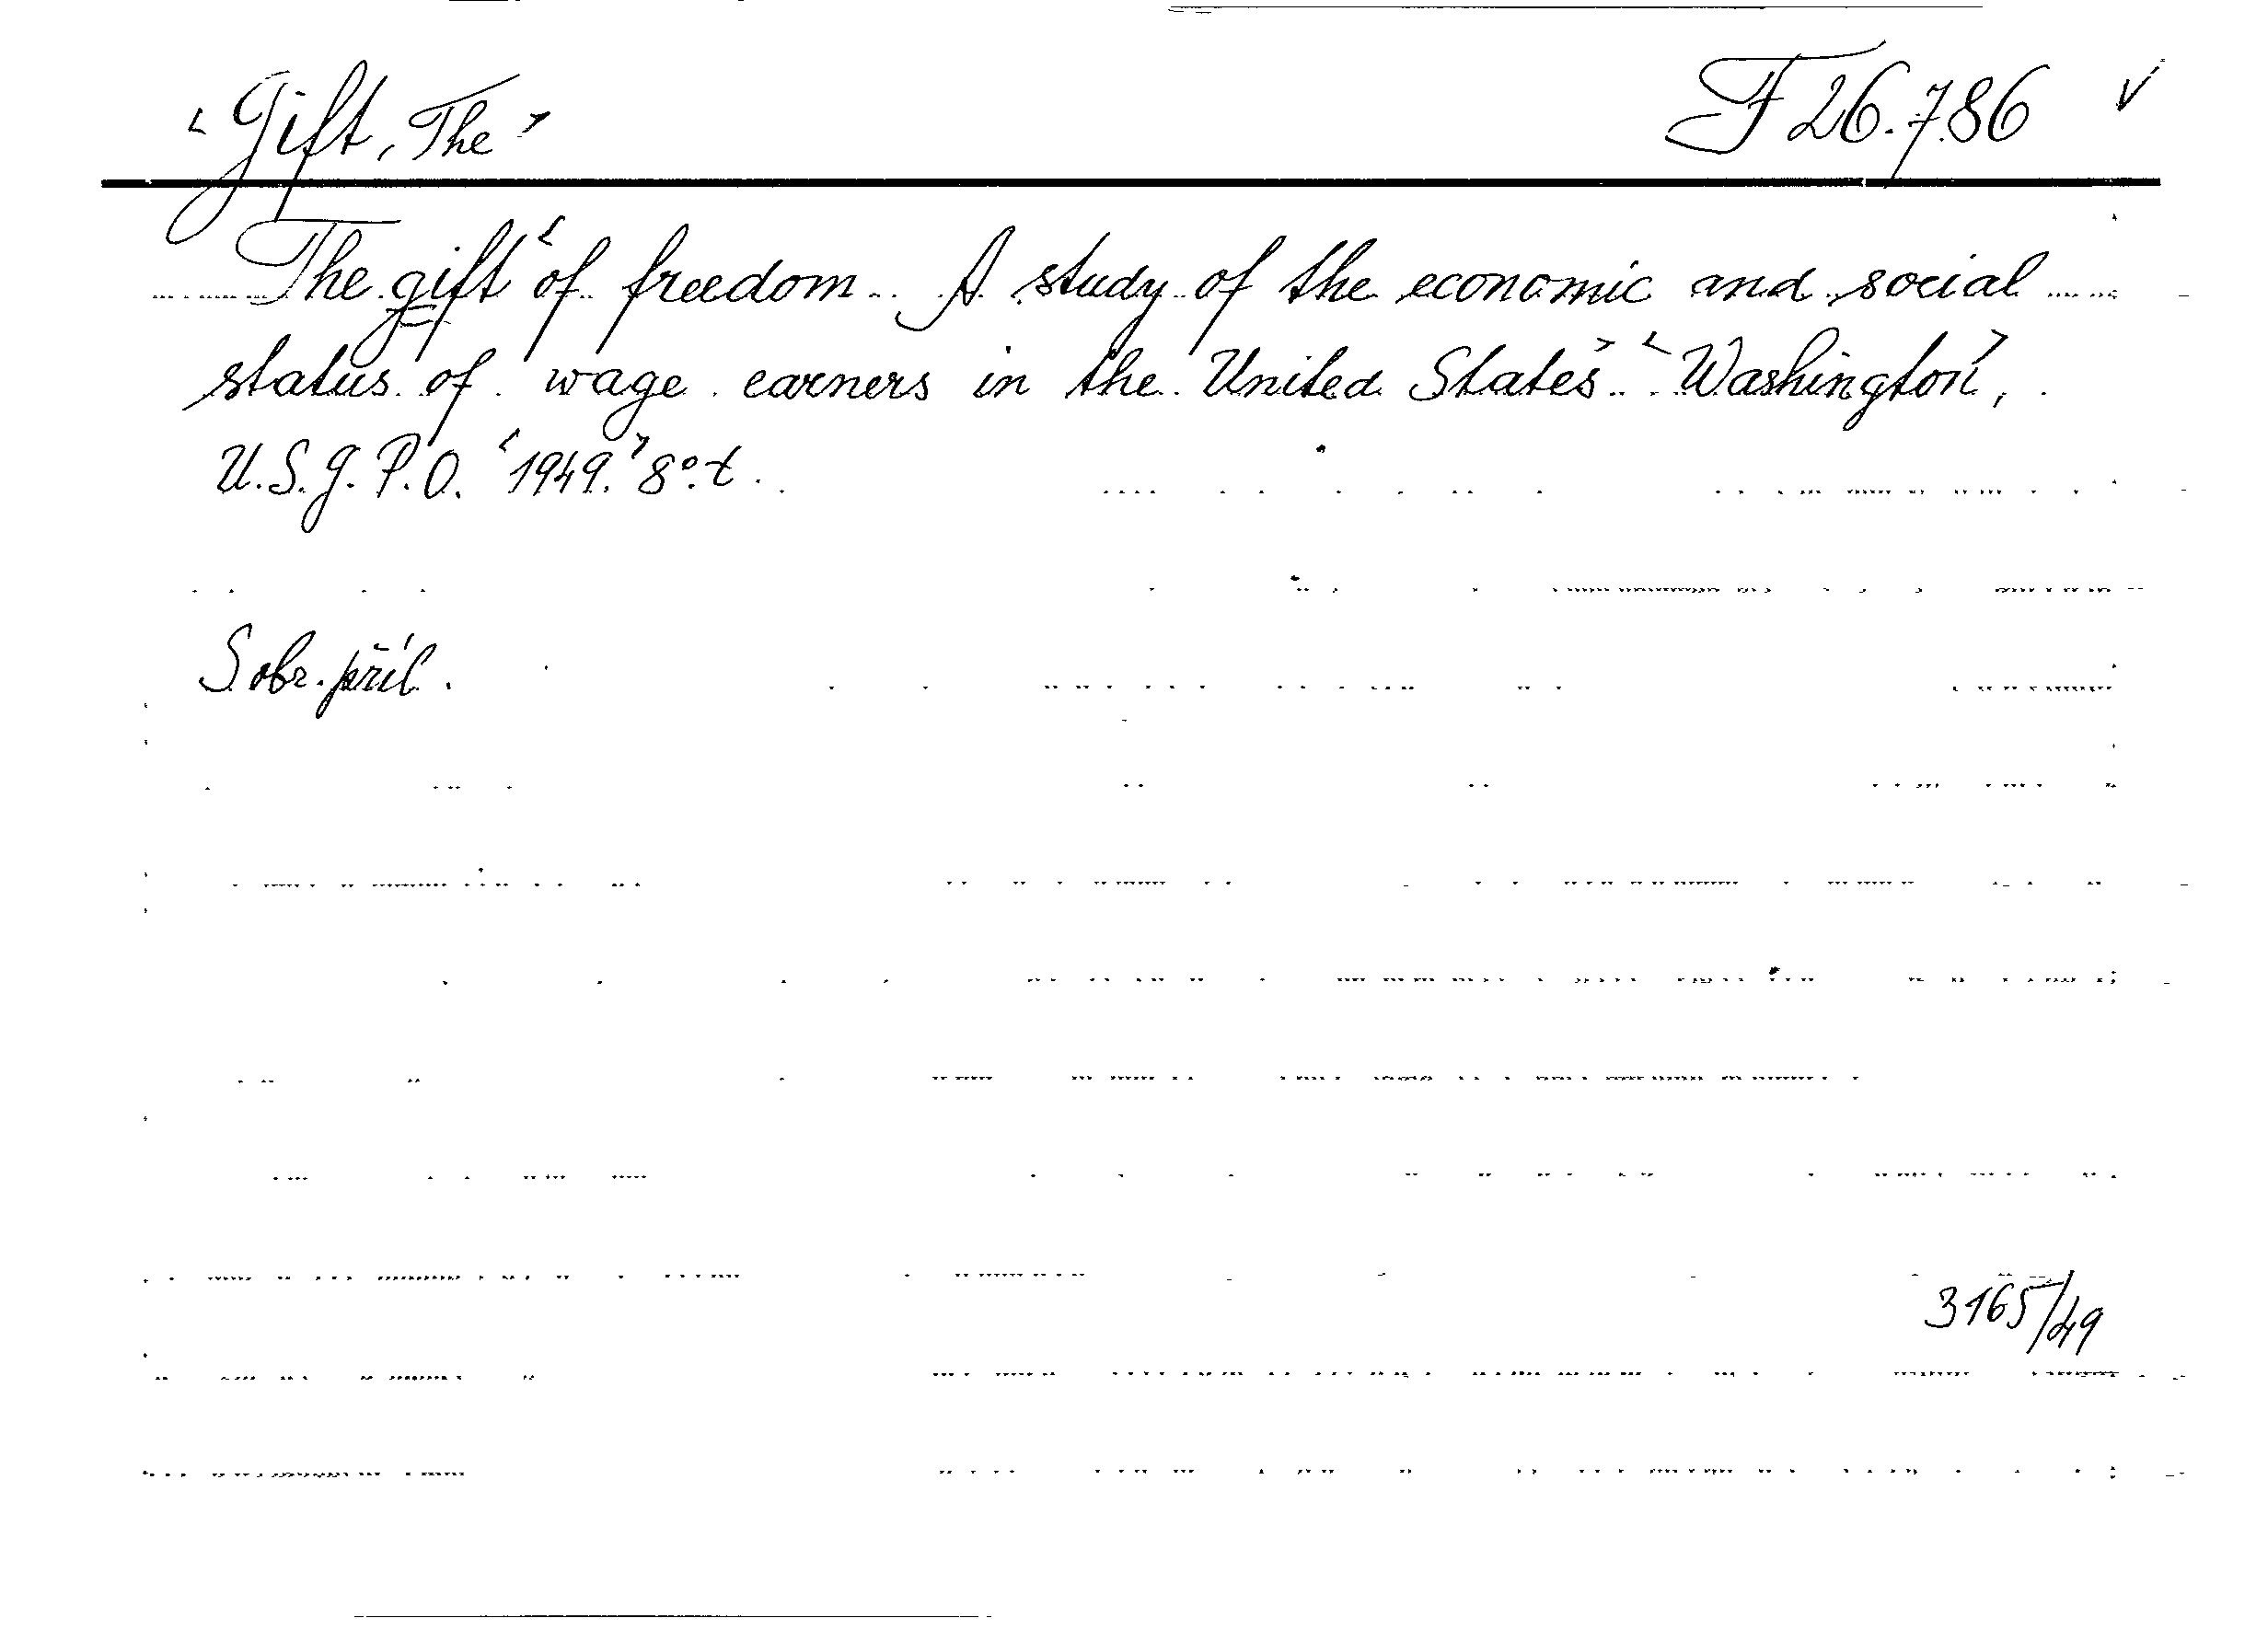 ‹Gift, The› F 26.786 V
The gift ‹of freedom. A study of the economic and social
status of wage earners in the United States› ‹Washington›,
U.S.G.P.O. ‹1949.› 8°. t.
S obr. příl.
3165/49